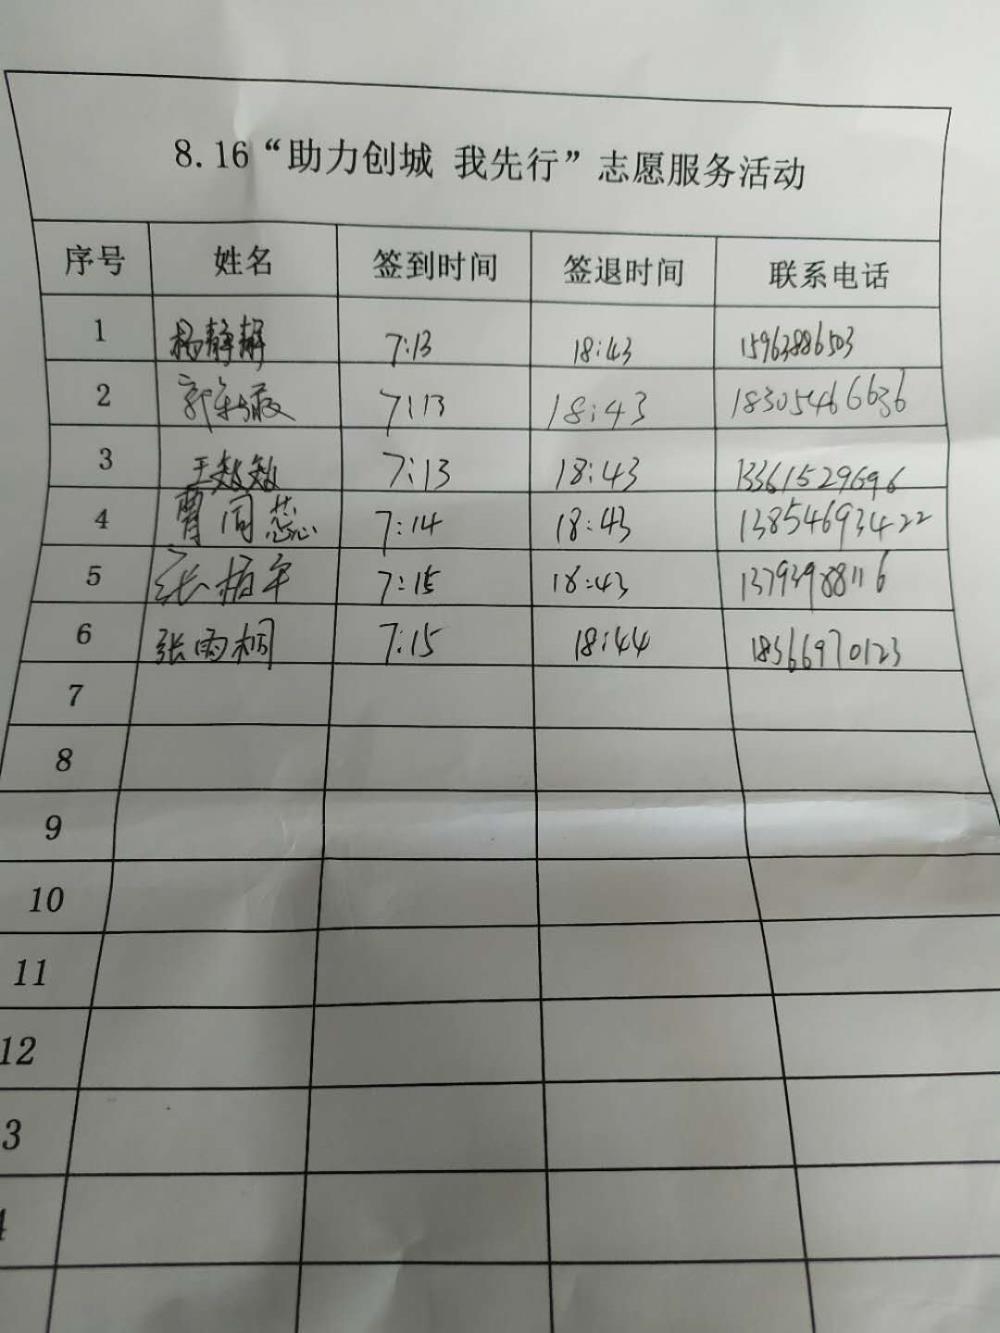 8.16“助力创城 我先行”志愿服务活动
序号 姓名 签到时间 签退时间 联系电话
1 杨静静 7:13 18:43 15963886503
2 7:13 18:43 18305466636
3 7:13 18:43 13361529696
4 7:14 18:43 13854693422
5 7:15 18:43 13793988116
6 张雨桐 7:15 18:44 18366970123
7
8
9
10
11
12
3